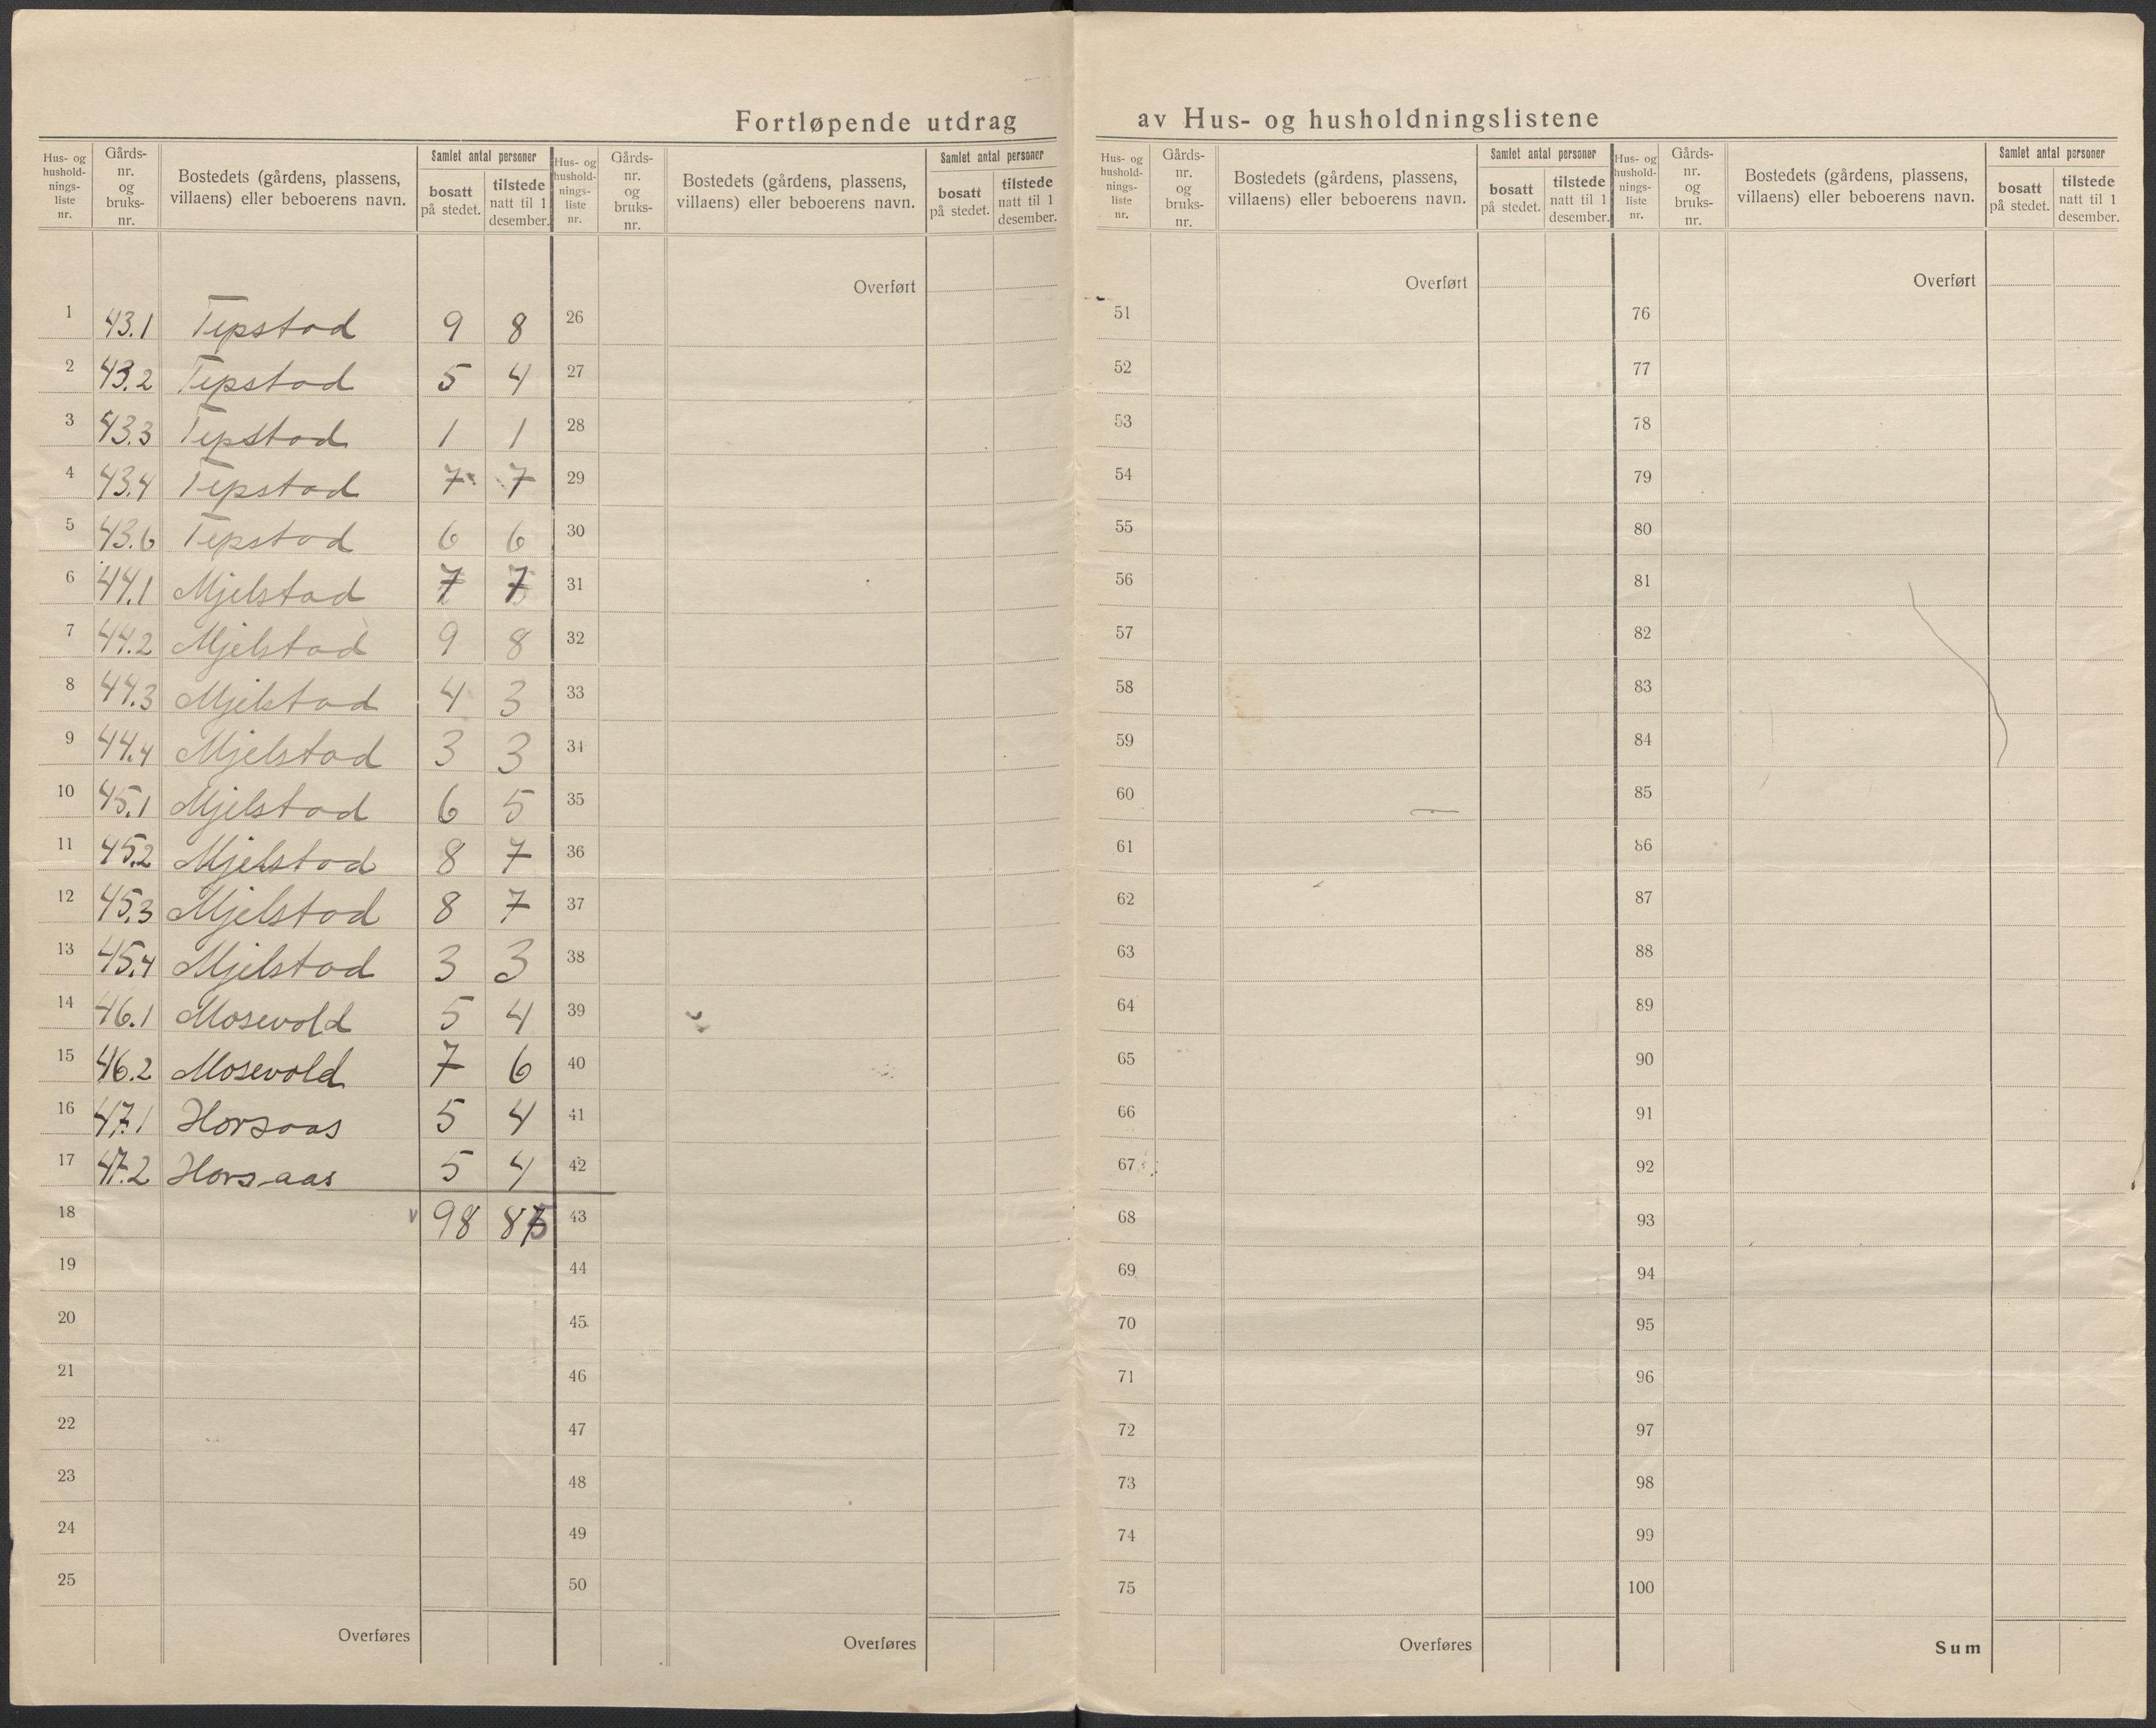 Fortløpende utdrag av Hus- og husholdningslistene
Hus- og hushold-nings-liste nr. Gårds-nr. og bruks-nr. Bostedets (gårdens, plassens, villaens) eller beboerens navn. Samlet antal personer bosatt på stedet. tilstede natt til 1 desember.
Hus- og hushold-nings-liste nr. Gårds-nr. og bruks-nr. Bostedets (gårdens, plassens, villaens) eller beboerens navn. Samlet antal personer bosatt på stedet. tilstede natt til 1 desember.
Hus- og hushold-nings-liste nr. Gårds-nr. og bruks-nr. Bostedets (gårdens, plassens, villaens) eller beboerens navn. Samlet antal personer bosatt på stedet. tilstede natt til 1 desember.
Hus- og hushold-nings-liste nr. Gårds-nr. og bruks-nr. Bostedets (gårdens, plassens, villaens) eller beboerens navn. Samlet antal personer bosatt på stedet. tilstede natt til 1 desember.
Overført Overført Overført
1 43.1 Tepstad 9 8 26 51 76
2 43.2 Tepstad 5 4 27 52 77
3 43.3 Tepstad 1 1 28 53 78
4 43.4 Tepstad 7 7 29 54 79
5 43.6 Tepstad 6 6 30 55 80
6 44.1 Mjelstad 7 7 31 56 81
7 44.2 Mjelstad 9 8 32 57 82
8 44.3 Mjelstad 4 3 33 58 83
9 44.4 Mjelstad 3 3 34 59 84
10 45.1 Mjelstad 6 5 35 60 85
11 45.2 Mjelstad 8 7 36 61 86
12 45.3 Mjelstad 8 7 37 62 87
13 45.4 Mjelstad 3 3 38 63 88
14 46.1 Mosevold 5 4 39 64 89
15 46.2 Mosevold 7 6 40 65 90
16 47.1 Horsaas 5 4 41 66 91
17 47.2 Horsaas 5 4 42 67 92
18 98 87 43 68 93
19 44 69 94
20 45 70 95
21 46 71 96
22 47 72 97
23 48 73 98
24 49 74 99
25 50 75 100
Overføres Overføres Overføres Sum